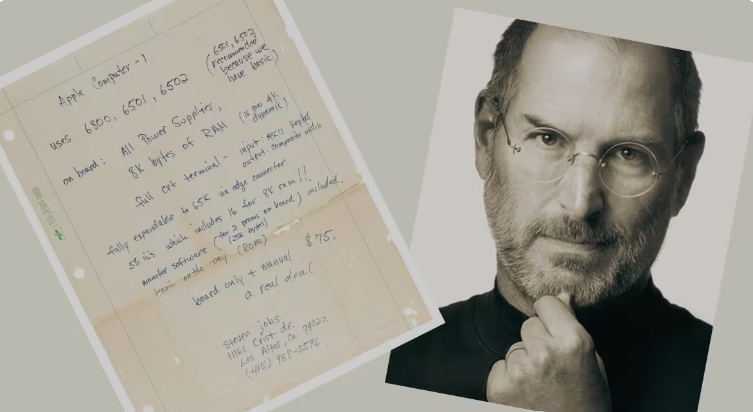 Apple Computer-1
6501, 6502
(recommended
because we
have basic)
uses 6800, 6501, 6502
on board: All Power Supplies,
8K bytes of RAM (16 pin 4K
dynamic)
full crt terminal - input: ASCII
output: composite video
fully expandable to 65K via edge connector
58 ic's which includes 16 for 8K ram!!
monitor software (for 2 proms on board) included.
(256 bytes)
basic on the way (ROM)
board only + manual $75.
a real deal
steven jobs
11161 Crist dr.
Los Altos, Ca 94022
(415) 968-3596